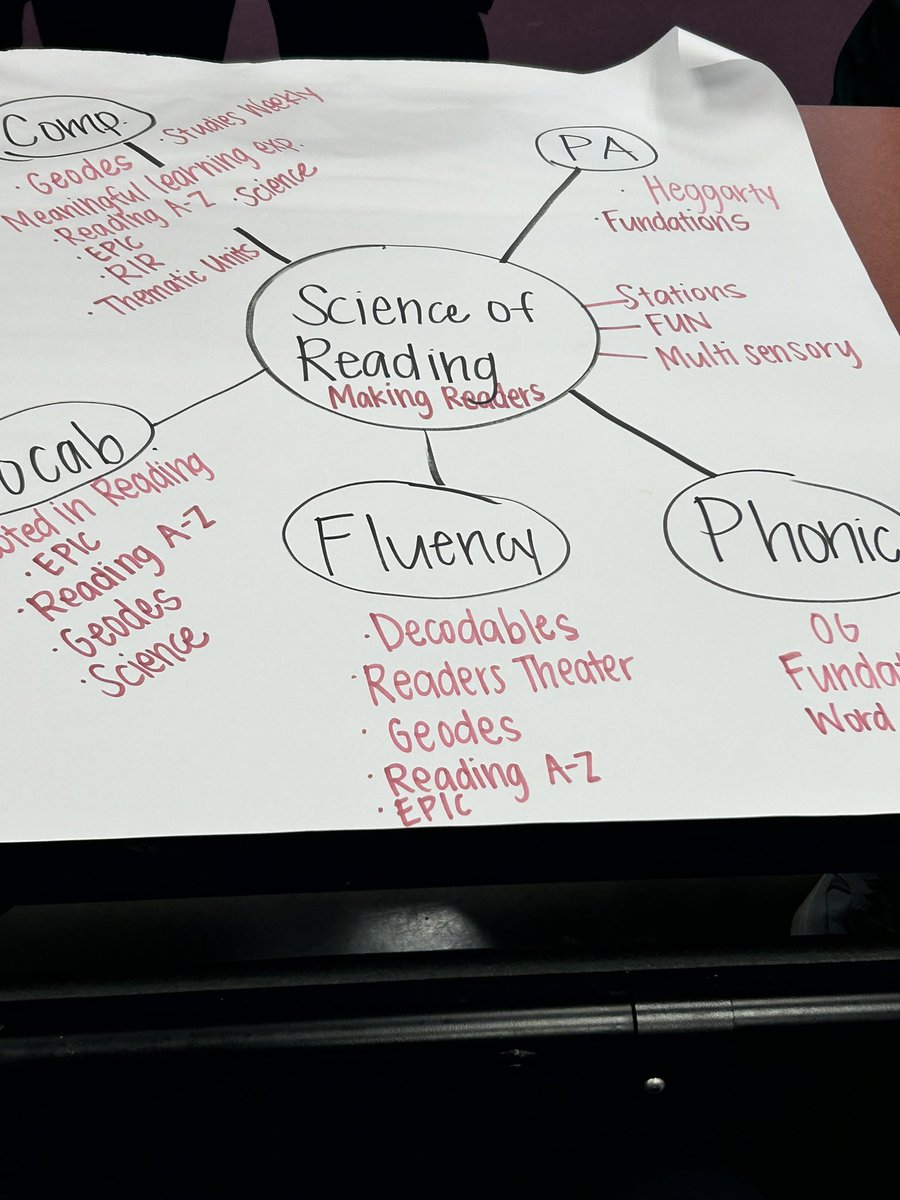 Comp.
· Studies Weekly
· Geodes
Meaningful learning exp.
· Reading A-Z · Science
· EPIC
· RIR
· Thematic Units
PA
· Heggarty
· Fundations
Science of
Reading
Making Readers
Stations
FUN
Multi sensory
ocab
in Reading
· EPIC
· Reading A-Z
· Geodes
· Science
Fluency
· Decodables
· Readers Theater
· Geodes
· Reading A-Z
· EPIC
Phonic
OG
Fundat
Word